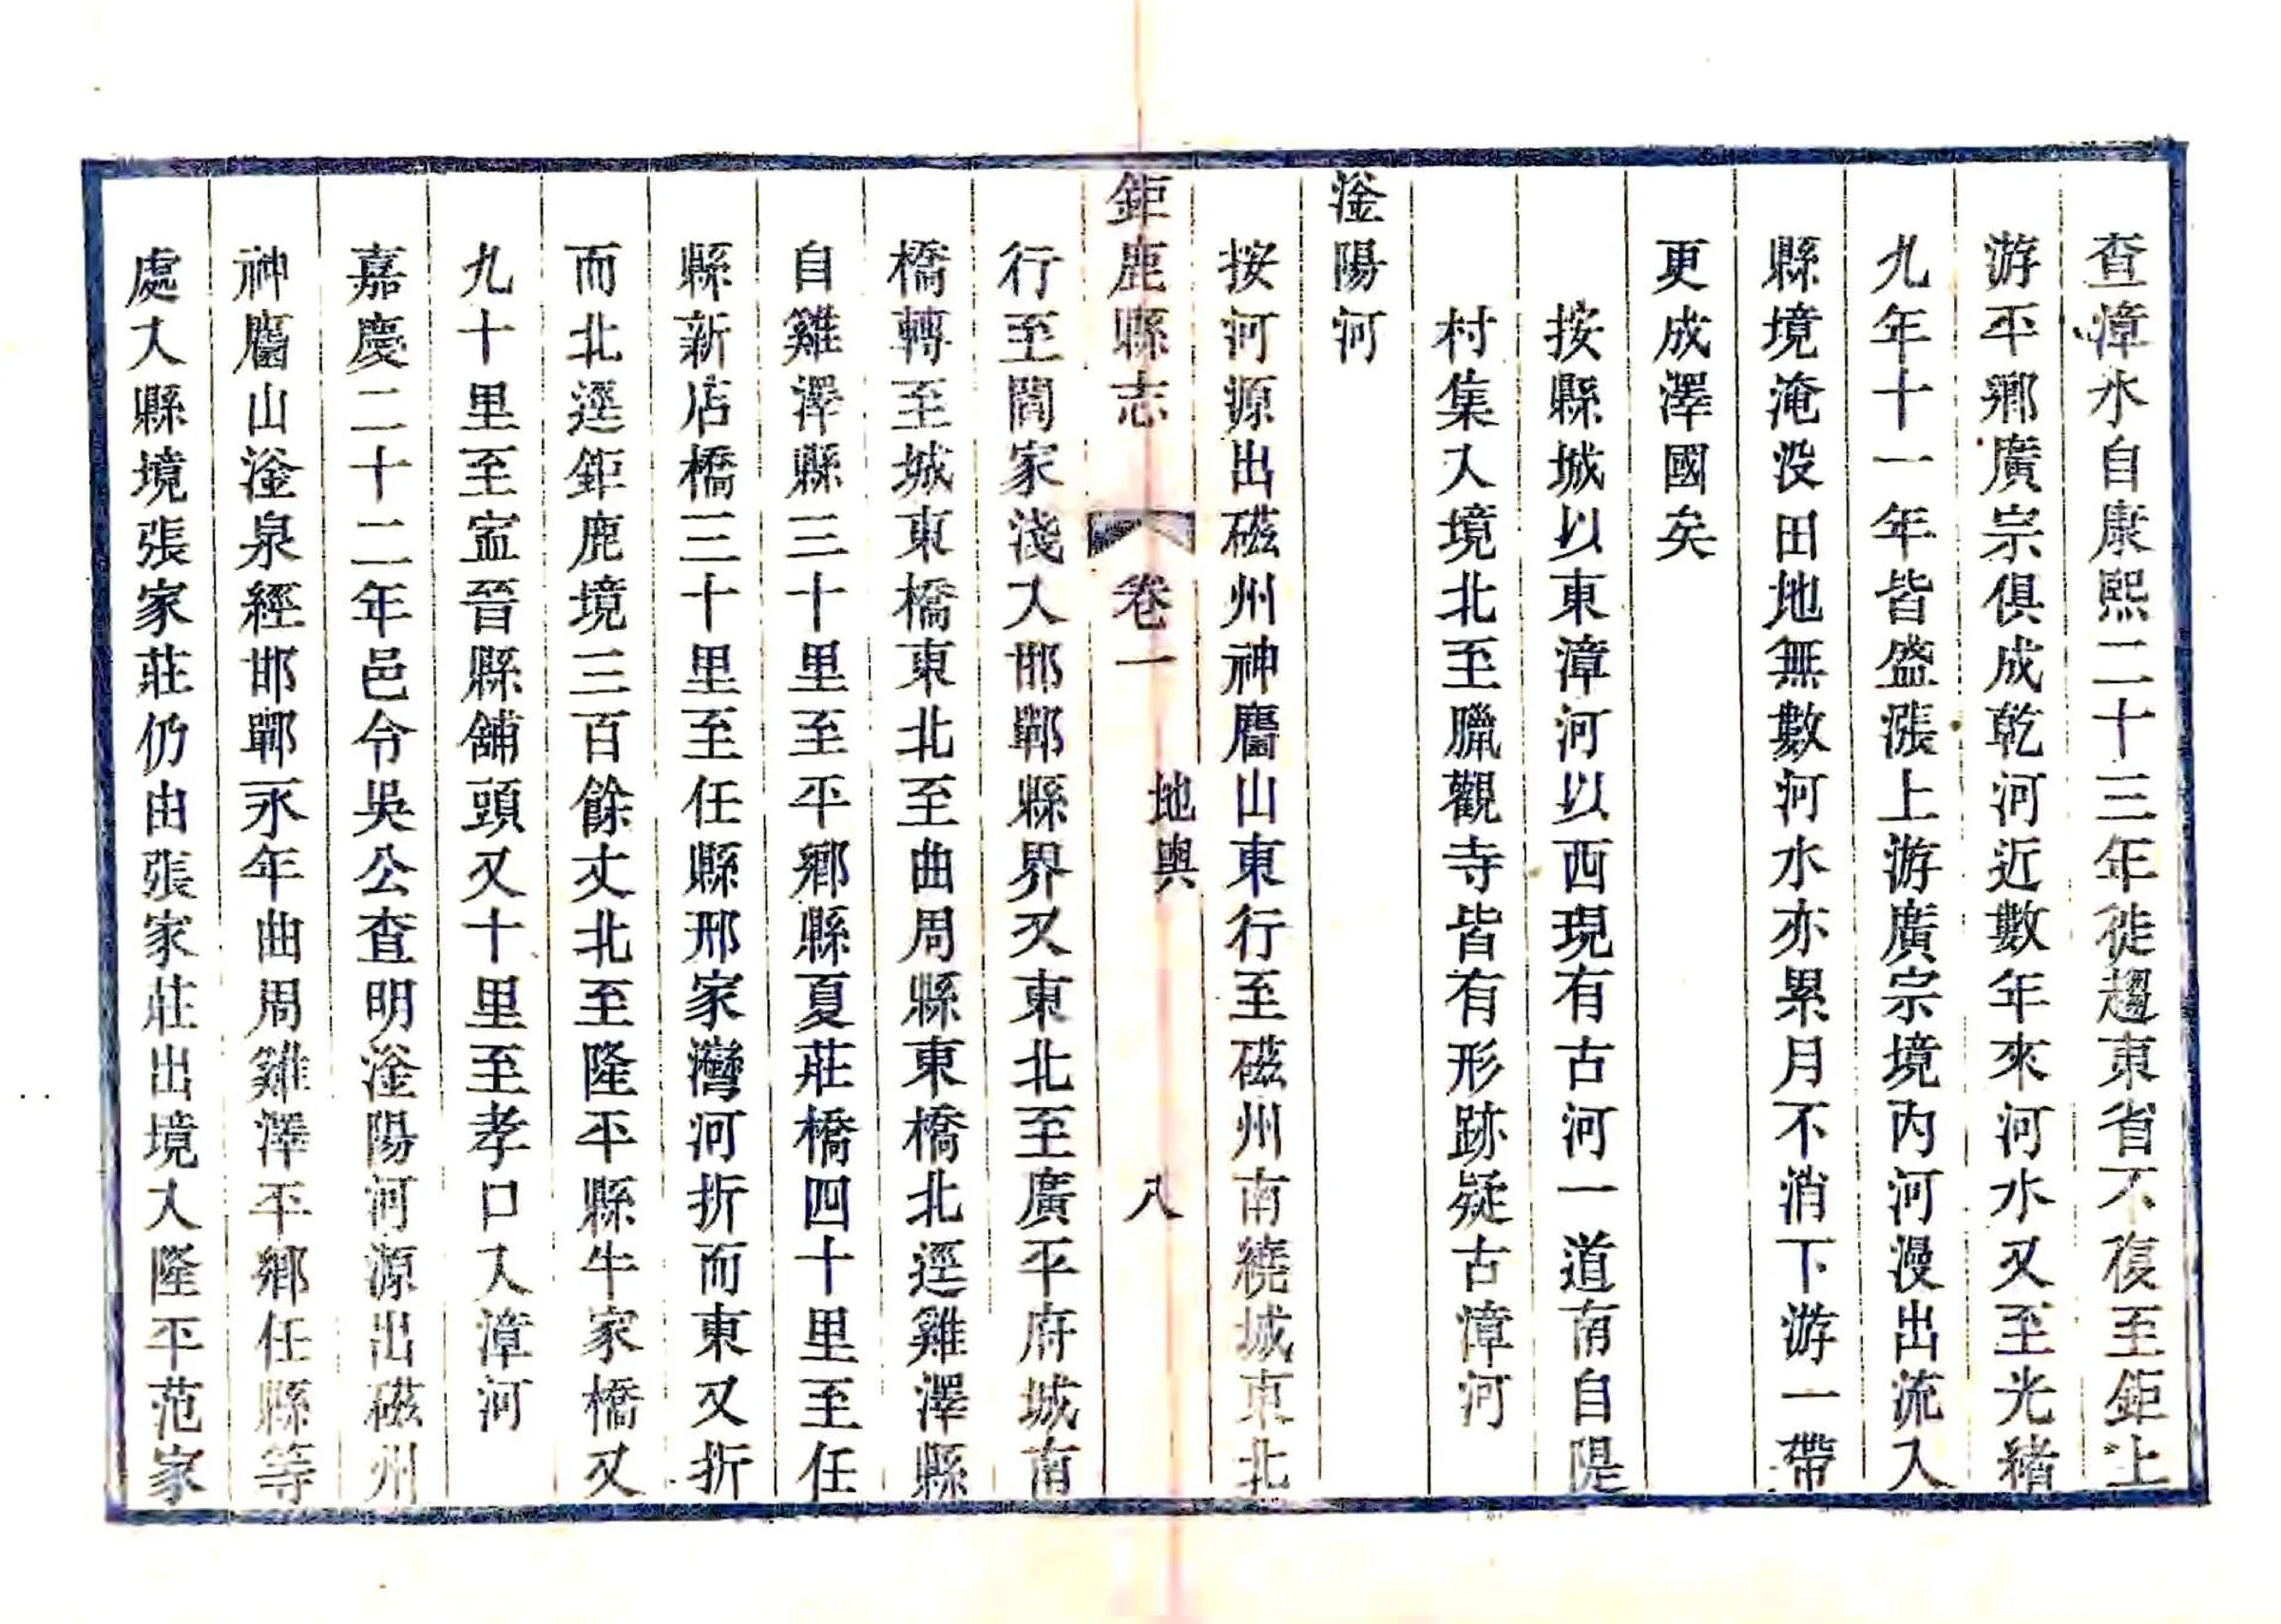 查漳水自康熙二十三年徙趨東省不復至鉅上
游平鄉廣宗俱成乾河近數年來河水又至光緒
九年十一年皆盛漲上游廣宗境內河漫出流入
縣境淹没田地無數河水亦累月不消下游一帶
更成澤國矣
按縣城以東漳河以西現有古河一道南自隄
村集入境北至臘觀寺皆有形跡疑古漳河
滏陽河
按河源出磁州神麕山東行至磁州南繞城東北
鉅鹿縣志
卷一
地輿
八
行至閻家淺入邯鄲縣界又東北至廣平府城南
橋轉至城東橋東北至曲周縣東橋北逕雞澤縣
自雞澤縣三十里至平鄉縣夏莊橋四十里至任
縣新店橋三十里至任縣邢家灣河折而東又折
而北逕鉅鹿境三百餘丈北至隆平縣牛家橋又
九十里至寍晉縣舖頭又十里至孝口入漳河
嘉慶二十二年邑令吳公查明滏陽河源出磁州
神麕山滏泉經邯鄲永年曲周雞澤平鄉任縣等
處入縣境張家莊仍由張家莊出境入隆平范家